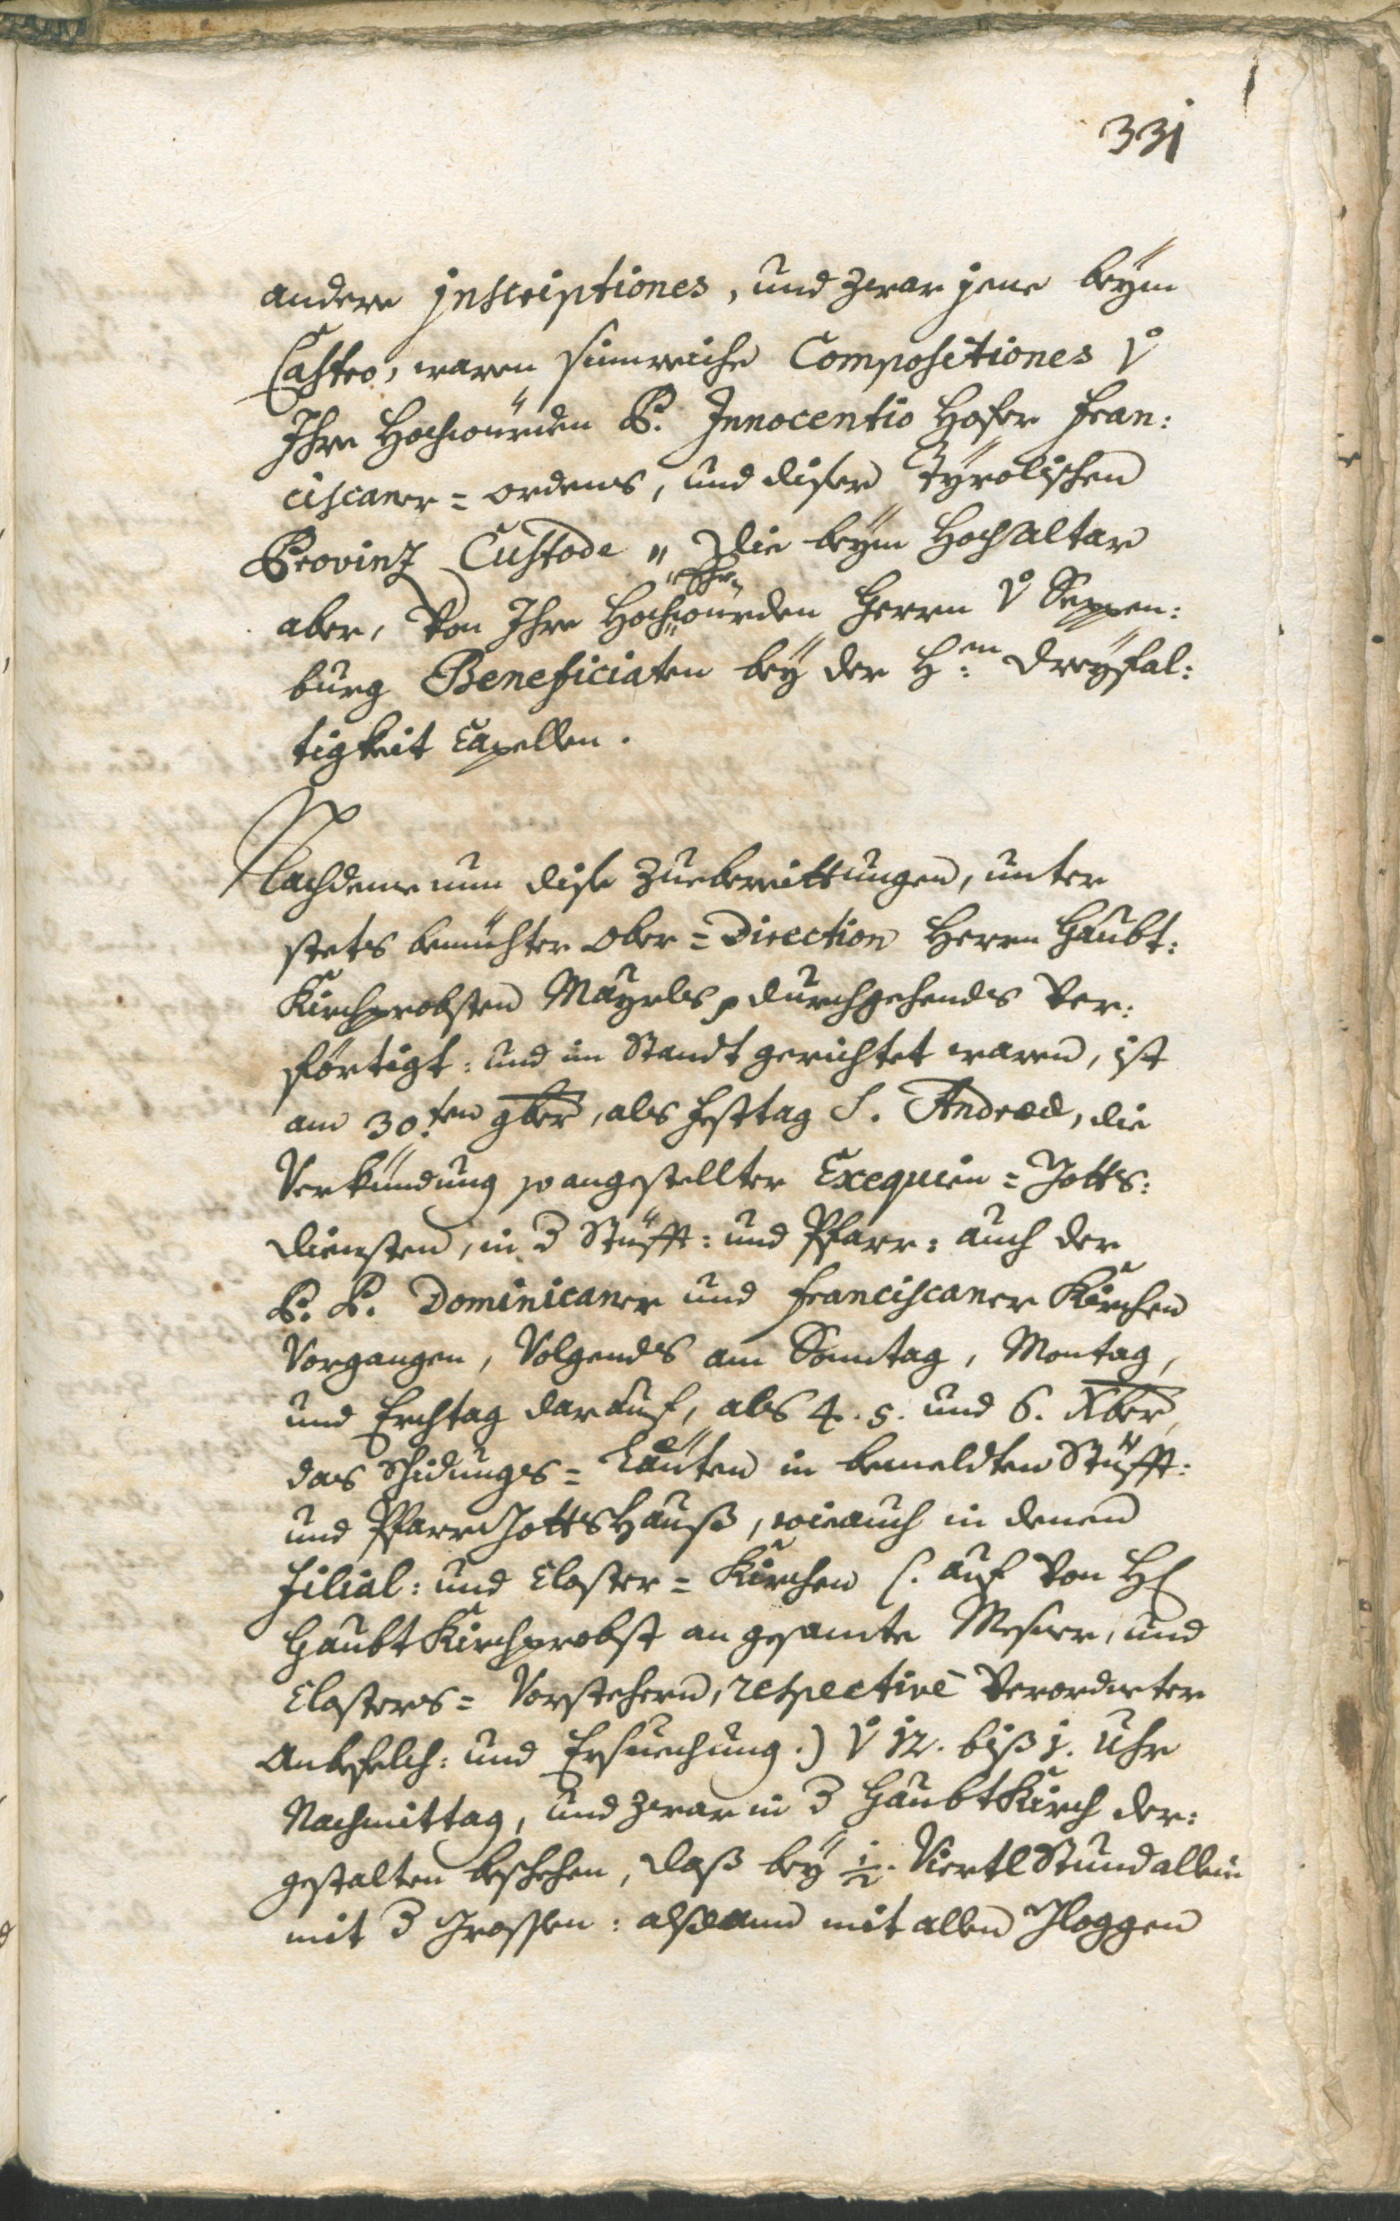 331
andere jnscriptiones, und zwar jene beÿm
Castro, waren sinnreiche Compositiones v̊
Ihre Hochwürden P. Innocentio Hofer Fran:
ciscaner=ordens, und diser Tÿrolischen
Provinz Custode „ Die beÿm Hochaltar
aber, von Ihre Hochwürden Herrn v̊ Seppen:
burg Beneficiaten beÿ der H:en Dreÿfal:
tigkeit Capellen.
Nachdeme nun dise Zuebereittungen, unter
stets bemüehter ober=Direction Herrn Haubt:
Kirchprobsten Maÿrls p durchgehends ver:
förtigt: und im Standt gerichtet waren, ist
am 30:ten 9ber, als Festtag S. Andreæ, die
Verkündung so angestellter Exequien=Gotts:
diensten, in d Stüfft: und Pfarr: auch der
P. P. Dominicaner und Franciscaner Kirchen
Vorgangen, Volgends am Sonntag, Montag,
und Erchtag darauf, als 4. 5. und 6. Xber,
das Schidungs=Läuten in bemeldten Stüfft:
und Pfarr GottsHauß, wieauch in denen
Filial: und Closter=Kirchen (: auf von H:
Haubt Kirchprobst an gesamte Messner, und
Closters=Vorstehern, respectivè verordneter
Anbefelch: und Ersuechung.) v̊ 12. biß 1. Uhr
Nachmittag, und zwar in d HaubtKirch der:
gestalten beschehen, daß beÿ ½. Viertl Stund allein
mit d Grossen: alßdann mit allen Gloggen